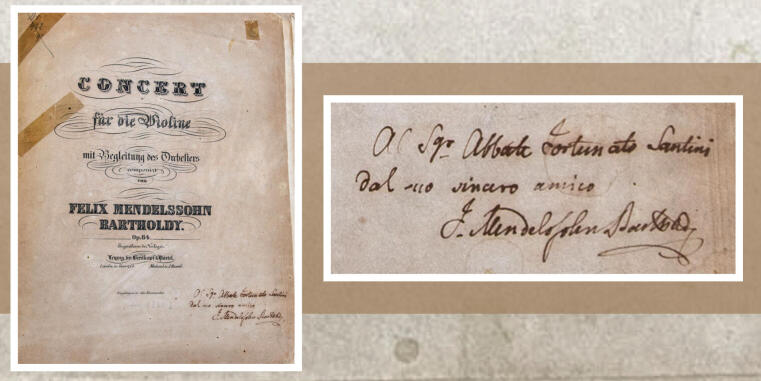 CONCERT
für die Violine
mit Begleitung des Orchesters
componirt
von
FELIX MENDELSSOHN
BARTHOLDY.
Op. 64.
Eigenthum der Verleger.
Leipzig, bei Breitkopf & Härtel.
Al Sgr Abbate Fortunato Santini
dal suo sincero amico
F. Mendelssohn Bartholdy
Al Sgr Abbate Fortunato Santini
dal suo sincero amico
F. Mendelssohn Bartholdy